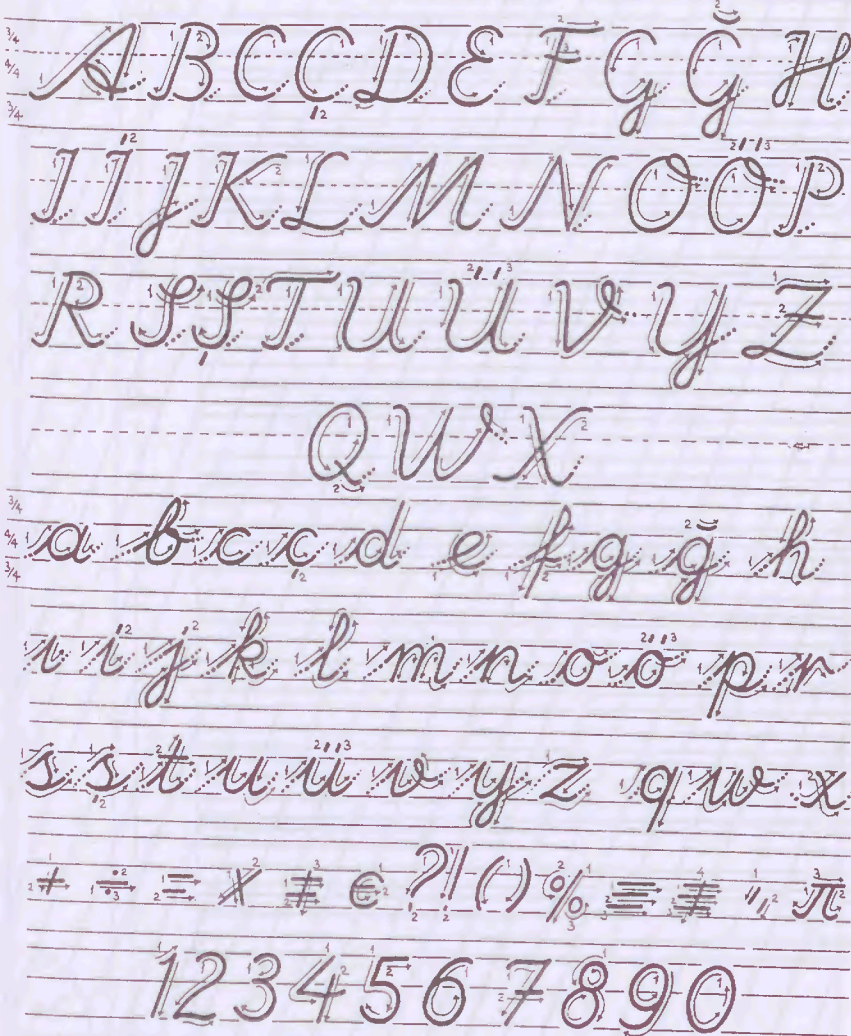 A B C Ç D E F G Ğ H
I İ J K L M N O Ö P
R S Ş T U Ü V Y Z
Q W X
a b c ç d e f g ğ h
ı i j k l m n o ö p r
s ş t u ü v y z q w x
+ ÷ = × ≠ € ? ! ( ) % ≡ ≢ " π
1 2 3 4 5 6 7 8 9 0